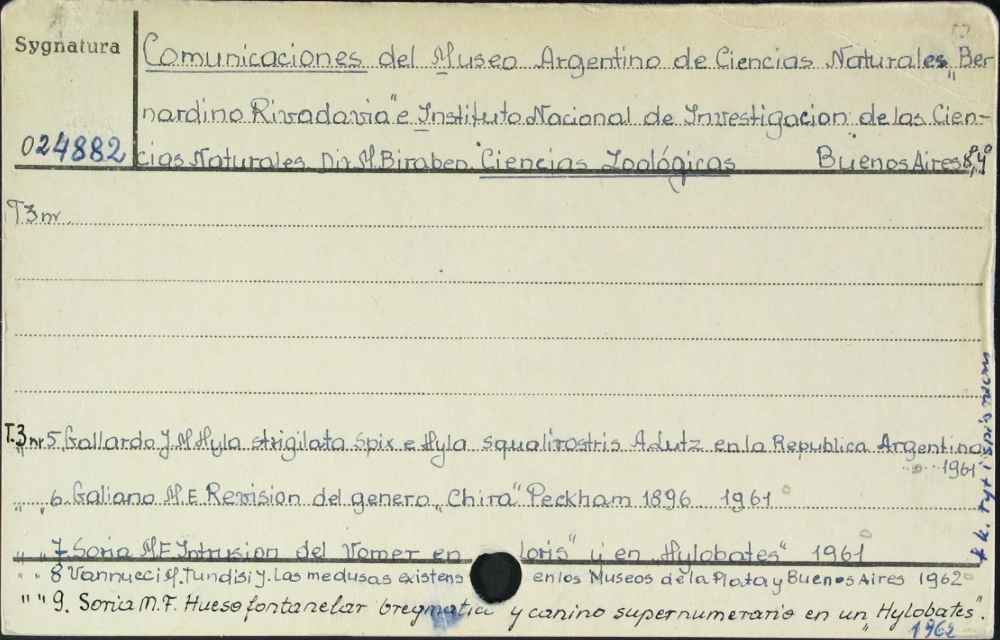 Sygnatura
Comunicaciones del Museo Argentino de Ciencias Naturales „Ber
nardino Rivadavia" e Instituto Nacional de Investigacion de las Cien-
024882
cias Naturales Dir. M. Biraben. Ciencias Zoológicas Buenos Aires 8°, 4°
T3 nr
T.3 nr 5. Gallardo J. M. Hyla strigilata Spix e Hyla squalirostris A. Lutz en la Republica Argentina
1961
„ „ 6. Galiano M. E. Revision del genero „Chira" Peckham 1896 1961
„ „ 7. Soria M. F. Intrusion del Vomer en loris" y en „Hylobates" 1961
" " 8 Vannucci M. Tundisi J. Las medusas existens en los Museos de la Plata y Buenos Aires 1962
" " 9. Soria M. F. Hueso fontanelar bregmatia y canino supernumerario en un „Hylobates".
1962